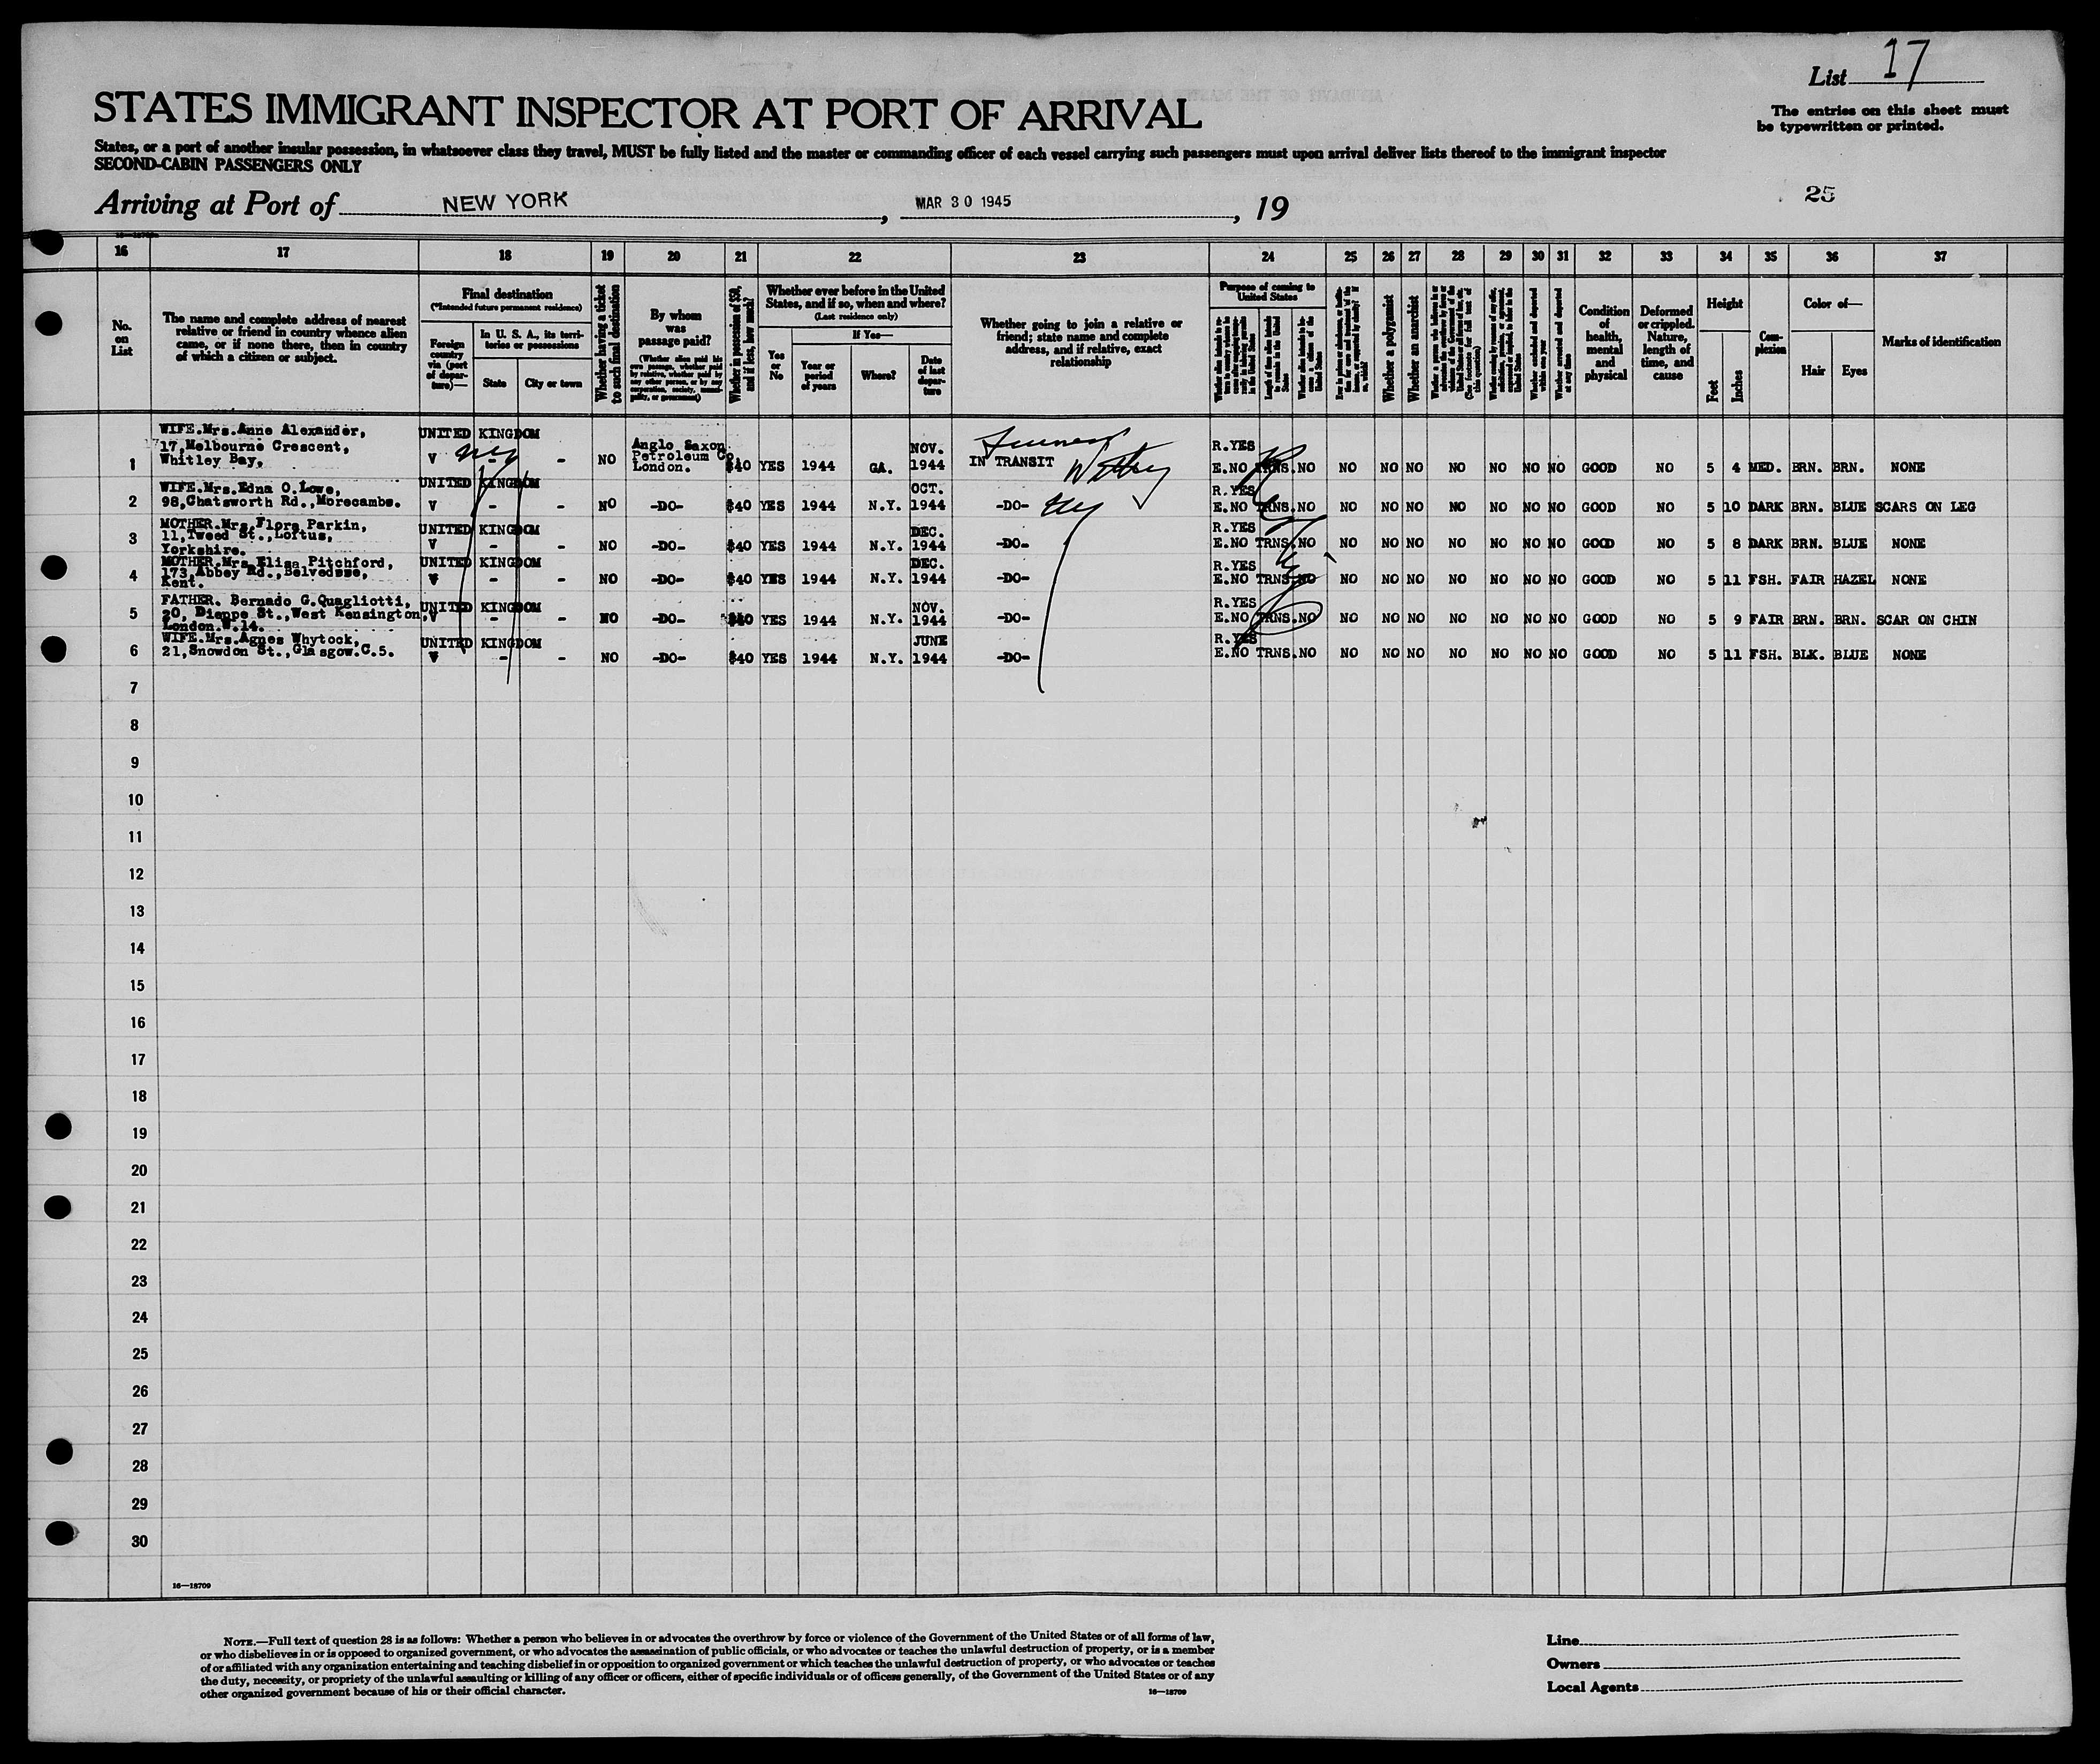 List 17
The entries on this sheet must
be typewritten or printed.
STATES IMMIGRANT INSPECTOR AT PORT OF ARRIVAL
States, or a port of another insular possession, in whatsoever class they travel, MUST be fully listed and the master or commanding officer of each vessel carrying such passengers must upon arrival deliver lists thereof to the immigrant inspector
SECOND-CABIN PASSENGERS ONLY
25
Arriving at Port of NEW YORK, MAR 30 1945, 19
16 17 18 19 20 21 22 23 24 25 26 27 28 29 30 31 32 33 34 35 36 37
No.
on
List
The name and complete address of nearest
relative or friend in country whence alien
came, or if none there, then in country
of which a citizen or subject.
Final destination
(*Intended future permanent residence)
Foreign
country
via (port
of depar-
ture)—
In U. S. A., its terri-
tories or possessions
State
City or town
Whether having a ticket
to such final destination
By whom
was
passage paid?
(Whether alien paid his
own passage, whether paid
by relative, whether paid by
any other person, or by any
corporation, society, munici-
pality, or government)
Whether in possession of $50,
and if less, how much?
Whether ever before in the United
States, and if so, when and where?
(Last residence only)
Yes
or
No
If Yes—
Year or
period
of years
Where?
Date
of last
depar-
ture
Whether going to join a relative or
friend; state name and complete
address, and if relative, exact
relationship
Purpose of coming to
United States
Whether a polygamist
Whether an anarchist
Whether arrested and deported
at any time
Condition
of
health,
mental
and
physical
Deformed
or crippled.
Nature,
length of
time, and
cause
Height
Feet
Inches
Com-
plexion
Color of—
Hair
Eyes
Marks of identification
WIFE.Mrs.Anne Alexander,
17,Melbourne Crescent,
Whitley Bay,
1 UNITED KINGDOM V - - NO Anglo Saxon Petroleum Co London. $40 YES 1944 GA. NOV. 1944 IN TRANSIT R.YES E.NO TRNS. NO NO NO NO NO NO NO NO GOOD NO 5 4 MED. BRN. BRN. NONE
WIFE.Mrs.Edna O.Lowe,
98,Chatsworth Rd.,Morecambe.
2 UNITED KINGDOM V - - NO -DO- $40 YES 1944 N.Y. OCT. 1944 -DO- R.YES E.NO TRNS. NO NO NO NO NO NO NO NO GOOD NO 5 10 DARK BRN. BLUE SCARS ON LEG
MOTHER.Mrs.Flora Parkin,
11,Tweed St.,Loftus,
Yorkshire.
3 UNITED KINGDOM V - - NO -DO- $40 YES 1944 N.Y. DEC. 1944 -DO- R.YES E.NO TRNS. NO NO NO NO NO NO NO NO GOOD NO 5 8 DARK BRN. BLUE NONE
MOTHER.Mrs.Eliza Pitchford,
173,Abbey Rd.,Belvedere,
Kent.
4 UNITED KINGDOM V - - NO -DO- $40 YES 1944 N.Y. DEC. 1944 -DO- R.YES E.NO TRNS. NO NO NO NO NO NO NO NO GOOD NO 5 11 FSH. FAIR HAZEL NONE
FATHER. Bernado G.Quagliotti,
20, Dieppe St.,West Kensington,
London.W.14.
5 UNITED KINGDOM V - - NO -DO- $40 YES 1944 N.Y. NOV. 1944 -DO- R.YES E.NO TRNS. NO NO NO NO NO NO NO NO GOOD NO 5 9 FAIR BRN. BRN. SCAR ON CHIN
WIFE.Mrs.Agnes Whytock,
21,Snowdon St.,Glasgow.C.5.
6 UNITED KINGDOM V - - NO -DO- $40 YES 1944 N.Y. JUNE 1944 -DO- R.YES E.NO TRNS. NO NO NO NO NO NO NO NO GOOD NO 5 11 FSH. BLK. BLUE NONE
7
8
9
10
11
12
13
14
15
16
17
18
19
20
21
22
23
24
25
26
27
28
29
30
16—18709
NOTE.—Full text of question 28 is as follows: Whether a person who believes in or advocates the overthrow by force or violence of the Government of the United States or of all forms of law,
or who disbelieves in or is opposed to organized government, or who advocates the assassination of public officials, or who advocates or teaches the unlawful destruction of property, or is a member
of or affiliated with any organization entertaining and teaching disbelief in or opposition to organized government or which teaches the unlawful destruction of property, or who advocates or teaches
the duty, necessity, or propriety of the unlawful assaulting or killing of any officer or officers, either of specific individuals or of officers generally, of the Government of the United States or of any
other organized government because of his or their official character.
16—18709
Line
Owners
Local Agents